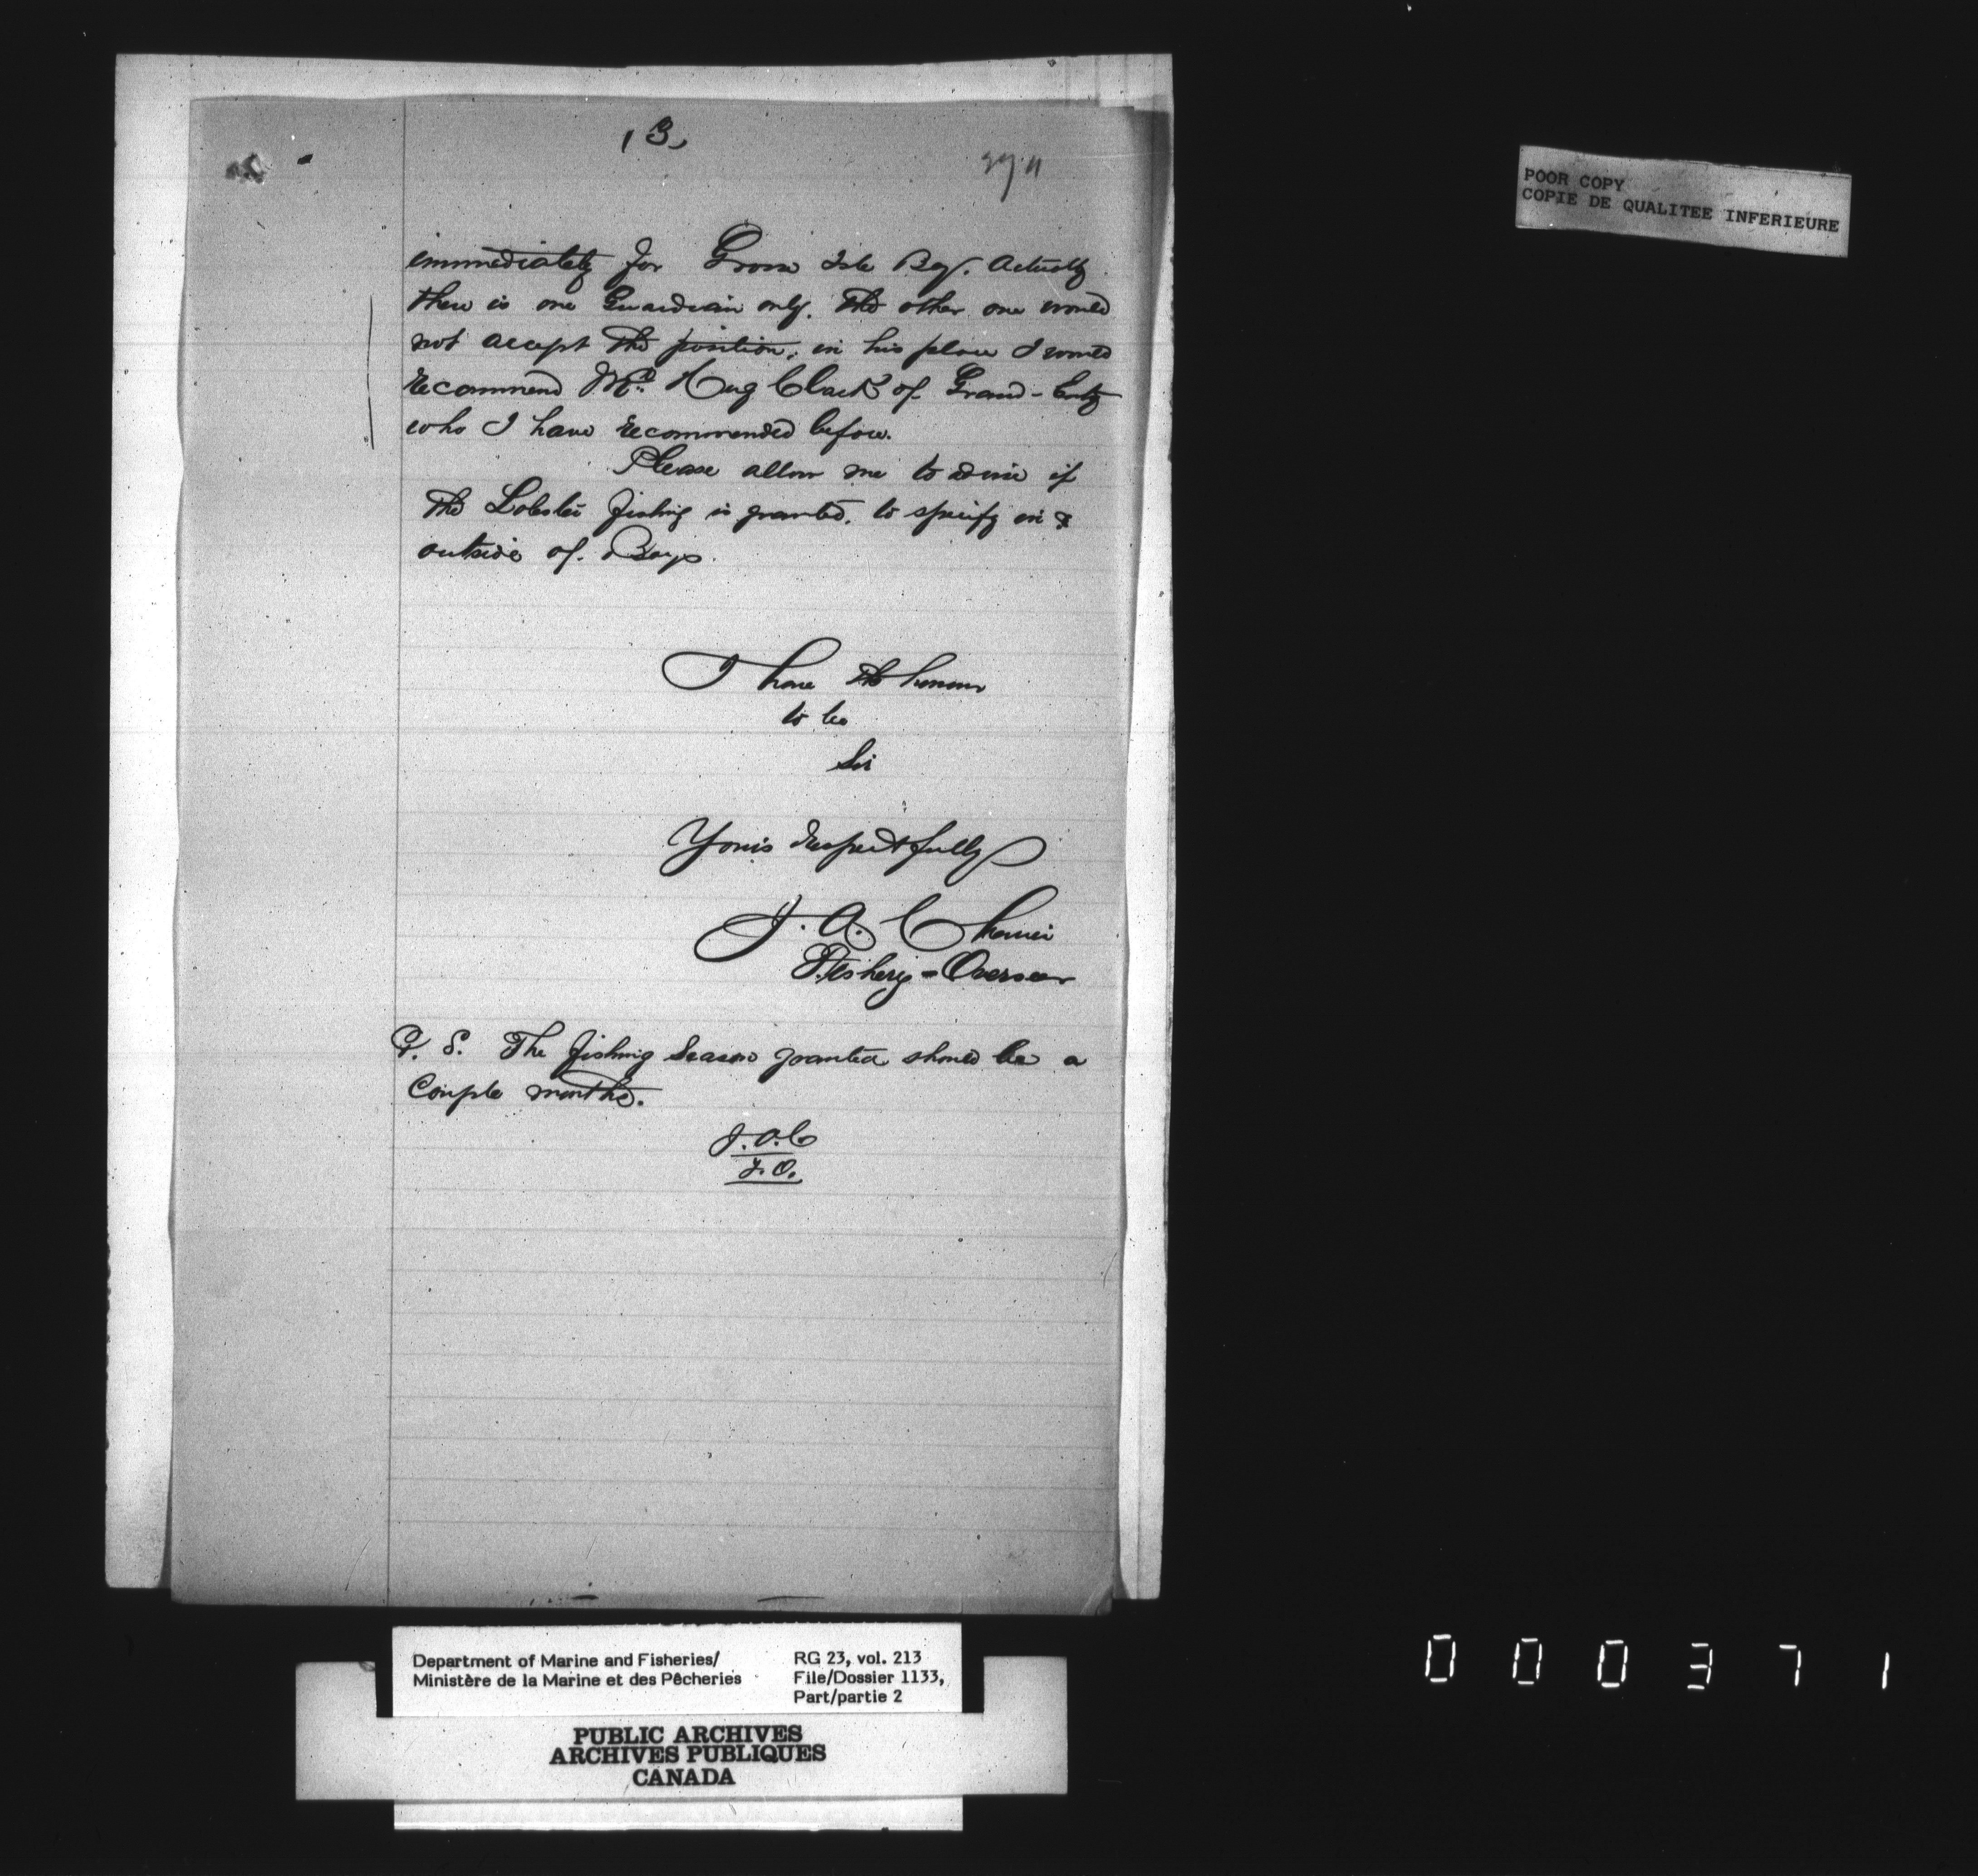 13
immediately for Gross Isle Bay. Actually
there is one Guardian only. The other one would
not accept the position, in his place I would
recommend Mr. Hug Clark of Grand-Entry
who I have recommended before.
Please allow me to advise if
the Lobster fishing is granted, to specify in &
outside of Bays.
I have the honour
to be
Sir
Yours respectfully
J. A. Chevrier
Fishery-Overseer
P. S. The fishing season granted should be a
Couple months.
J.A.C
F.O.
POOR COPY
COPIE DE QUALITEE INFERIEURE
Department of Marine and Fisheries/
Ministère de la Marine et des Pêcheries
RG 23, vol. 213
File/Dossier 1133,
Part/partie 2
PUBLIC ARCHIVES
ARCHIVES PUBLIQUES
CANADA
000371